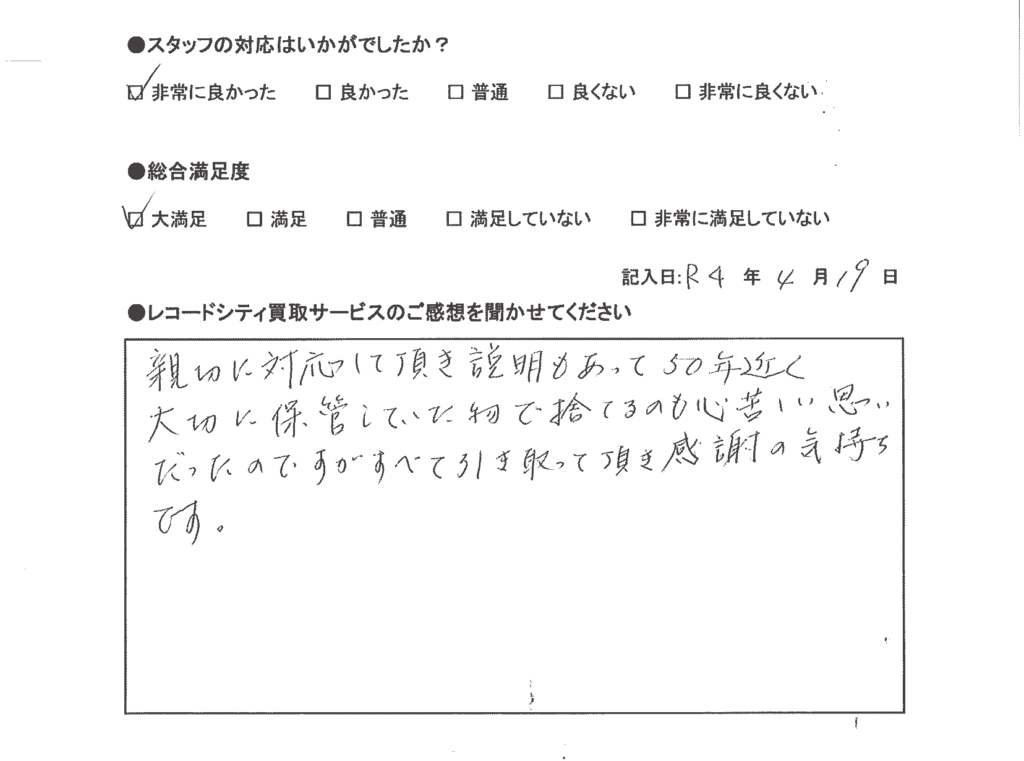 ●スタッフの対応はいかがでしたか？
☑ 非常に良かった □ 良かった □ 普通 □ 良くない □ 非常に良くない
●総合満足度
☑ 大満足 □ 満足 □ 普通 □ 満足していない □ 非常に満足していない
記入日:R4 年 4 月 19 日
●レコードシティ買取サービスのご感想を聞かせてください
親切に対応して頂き説明もあって50年近く
大切に保管していた物で捨てるのも心苦しい思い
だったのですがすべて引き取って頂き感謝の気持ち
です。